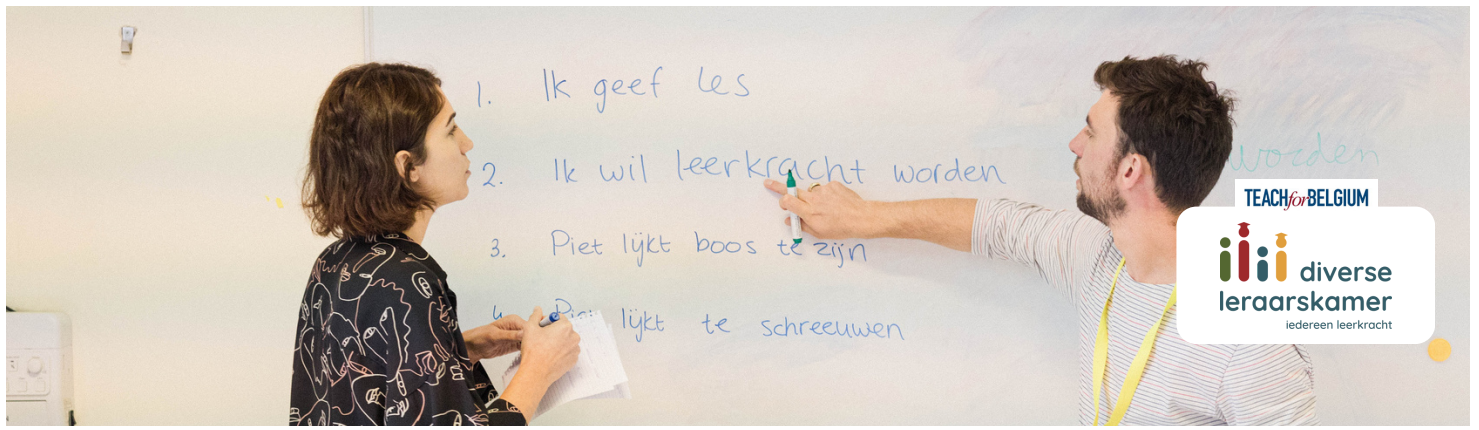 1. Ik geef les
2. Ik wil leerkracht worden
worden
3. Piet lijkt boos te zijn
4. Piet lijkt te schreeuwen
TEACHforBELGIUM
diverse
leraarskamer
iedereen leerkracht